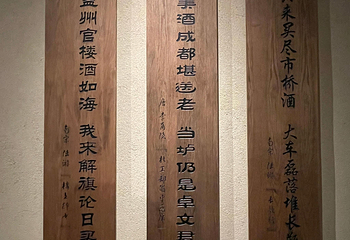 来买尽市桥酒 大车磊落堆长
南宋 陆游
酒成都堪送老 当垆仍是卓文君
唐 李商隐
益州官楼酒如海 我来解旗论日买
南宋 陆游